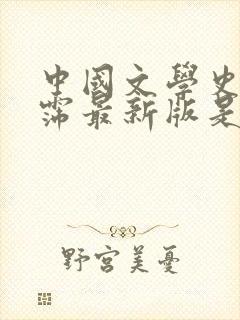 中國文學史
霈最新版是
野宮美憂